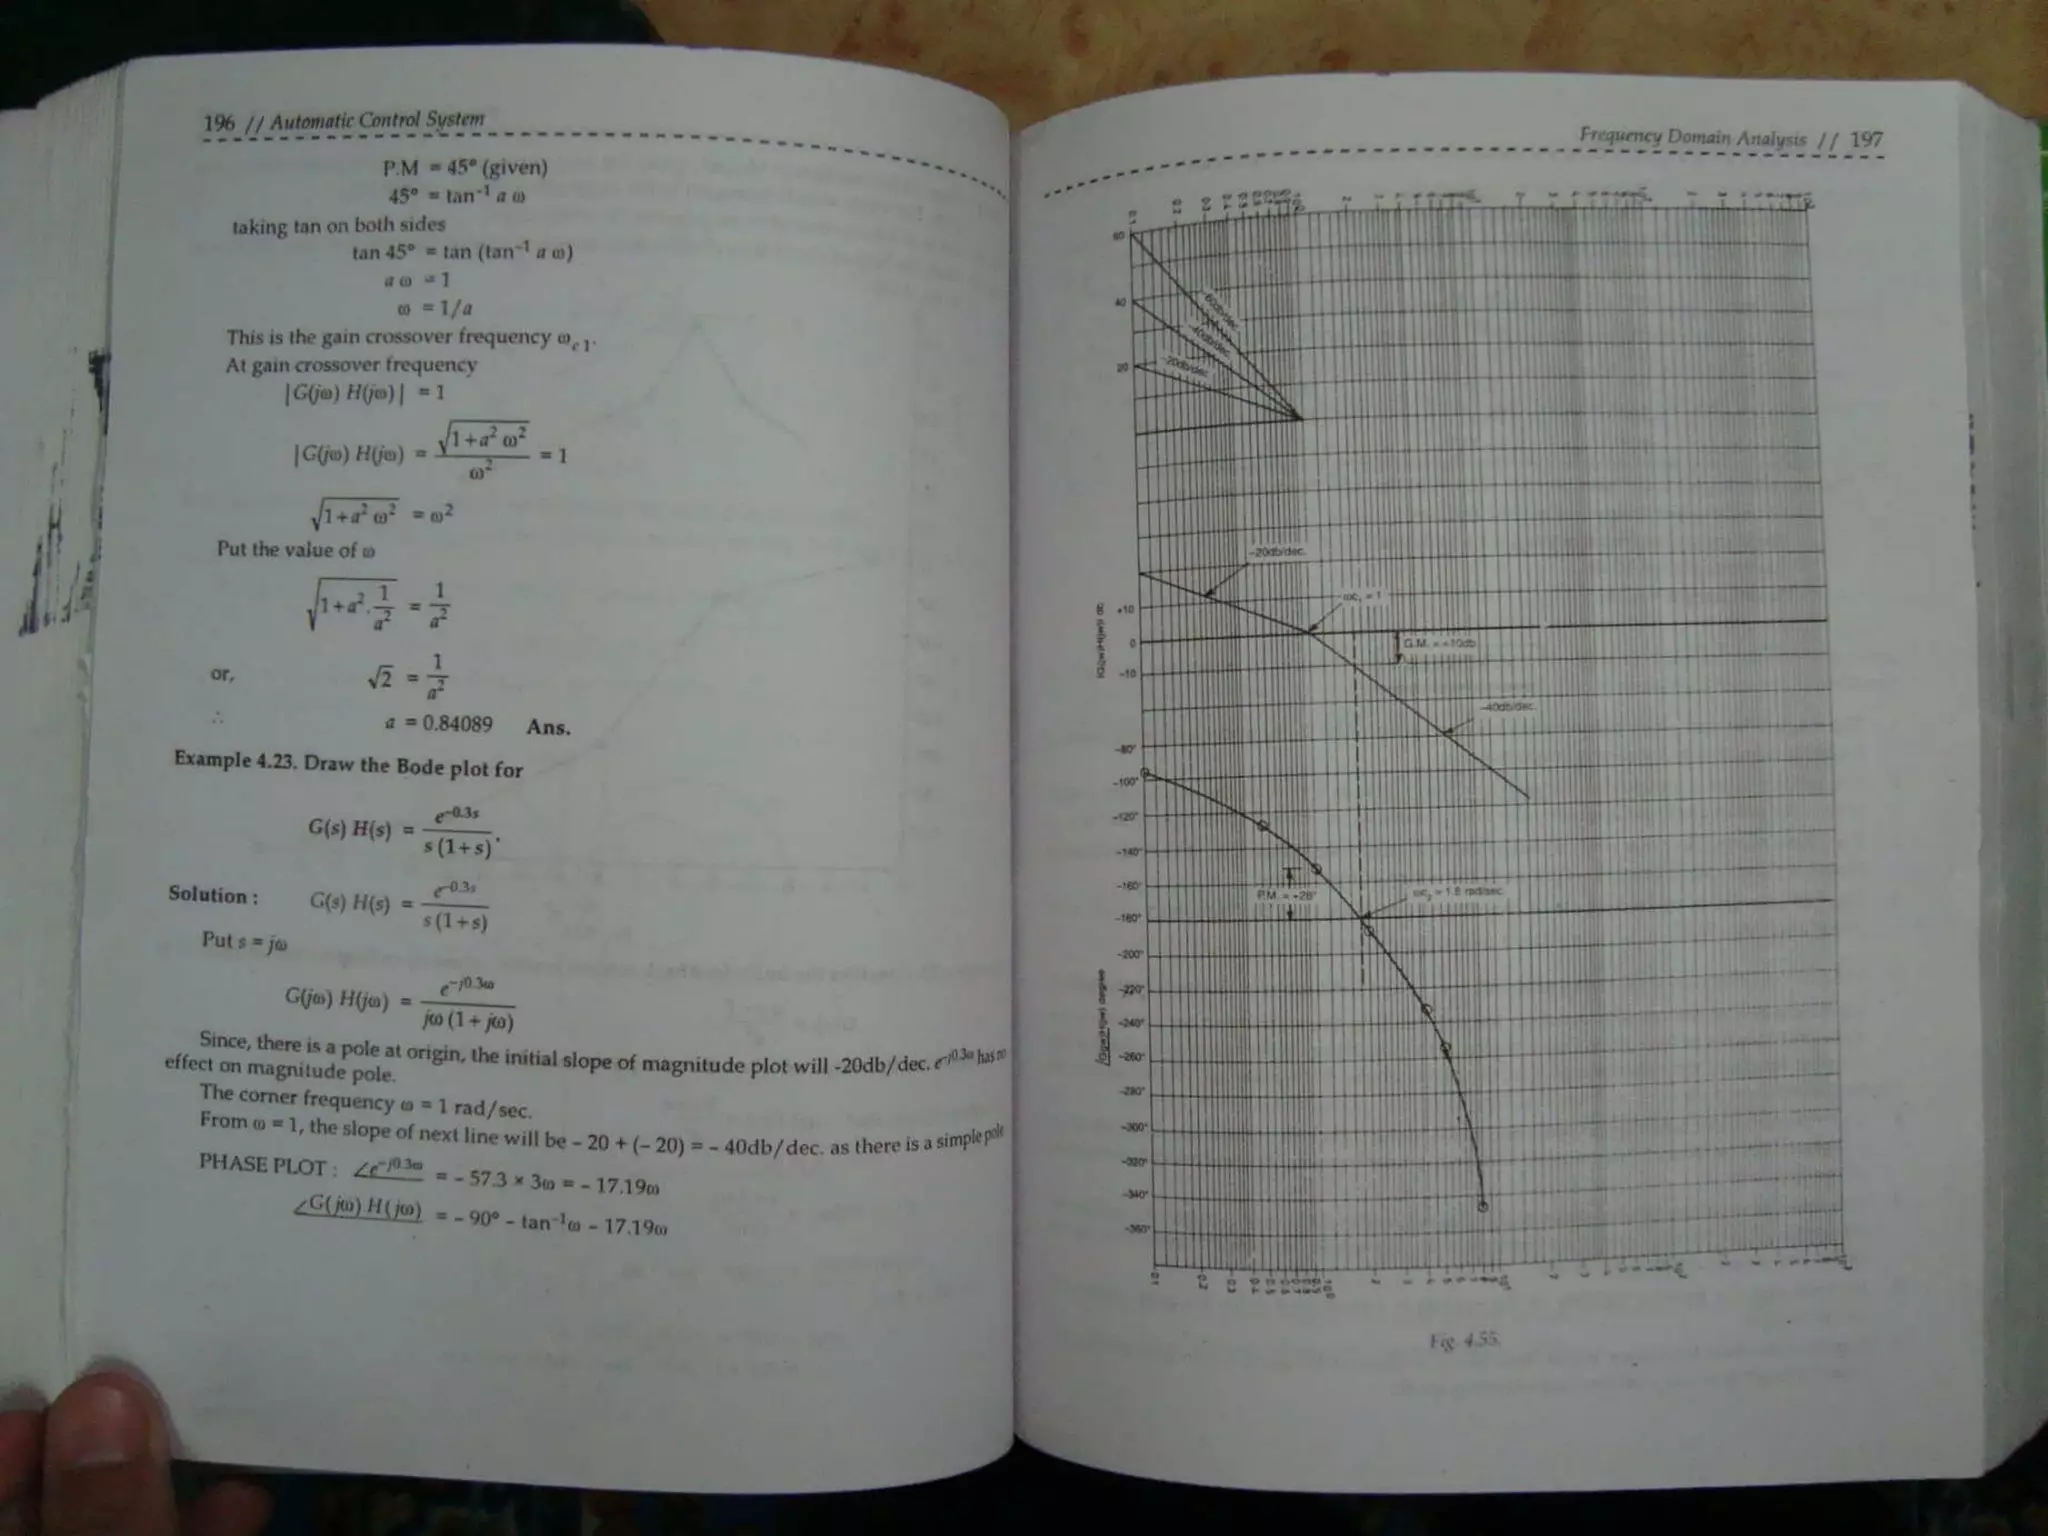 196 // Automatic Control System
P.M = 45° (given)
45° = tan⁻¹ a ω
taking tan on both sides
tan 45° = tan (tan⁻¹ a ω)
a ω = 1
ω = 1/a
This is the gain crossover frequency ω c 1.
At gain crossover frequency
|G(jω) H(jω)| = 1
|G(jω) H(jω) = √(1+a² ω²) / ω² = 1
√(1+a² ω²) = ω²
Put the value of ω
√(1+a². 1/a²) = 1/a²
or, √2 = 1/a²
∴ a = 0.84089 Ans.
Example 4.23. Draw the Bode plot for
G(s) H(s) = e^-0.3s / s (1+s).
Solution : G(s) H(s) = e^-0.3s / s (1+s)
Put s = jω
G(jω) H(jω) = e^-j0.3ω / jω (1+jω)
Since, there is a pole at origin, the initial slope of magnitude plot will -20db/dec. e^-j0.3ω has no
effect on magnitude pole.
The corner frequency ω = 1 rad/sec.
From ω = 1, the slope of next line will be – 20 + (– 20) = – 40db/dec. as there is a simple pole
PHASE PLOT : ∠e^-j0.3ω = – 57.3 × 3ω = – 17.19ω
∠G(jω) H(jω) = – 90° – tan⁻¹ω – 17.19ω
Frequency Domain Analysis // 197
0.1 0.2 0.3 0.4 0.5
60
40
20
-60db/dec.
-40db/dec.
-20db/dec.
-20db/dec.
ωc₁ = 1
+10
0
-10
G.M. = +10db
-40db/dec.
|G(jω)H(jω)| db
-80°
-100°
-120°
-140°
-160°
-180°
-200°
-220°
-240°
-260°
-280°
-300°
-320°
-340°
-360°
P.M. = +26°
ωc₂ = 1.8 rad/sec
∠G(jω)H(jω) degree
0.1 0.2 0.3 0.4 0.5
Fig. 4.55.